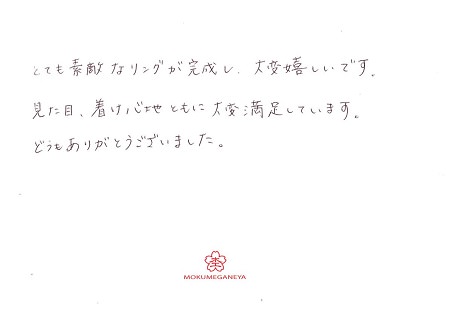 とても素敵なリングが完成し、大変嬉しいです。
見た目、着け心地ともに大変満足しています。
どうもありがとうございました。
杢
MOKUMEGANEYA